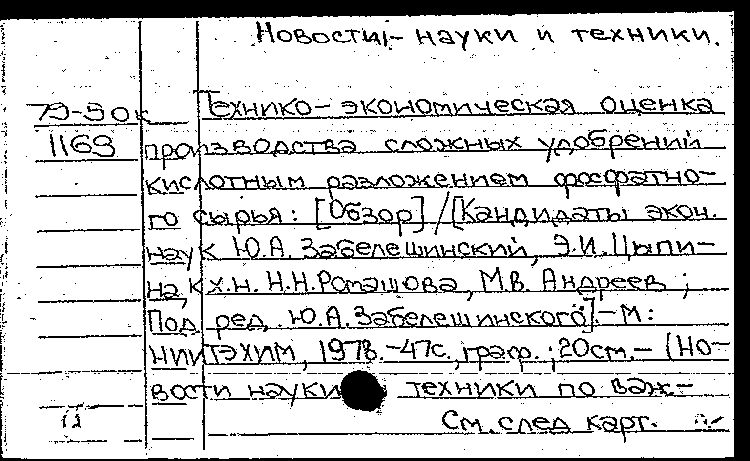 Новости науки и техники.
79-90к Технико-экономическая оценка
1169 производства сложных удобрений
кислотным разложением фосфатно-
го сырья: [Обзор] / [Кандидаты экон.
наук Ю.А. Забелешинский, Э.И. Цыпи-
на, к.х.н. Н.Н. Ромашова, М.В. Андреев ;
Под ред. Ю.А. Забелешинского]-М:
НИИТЭХИМ, 1978.-47с., граф. ; 20см.- (Но-
вости науки техники по важ-
См. след карт.